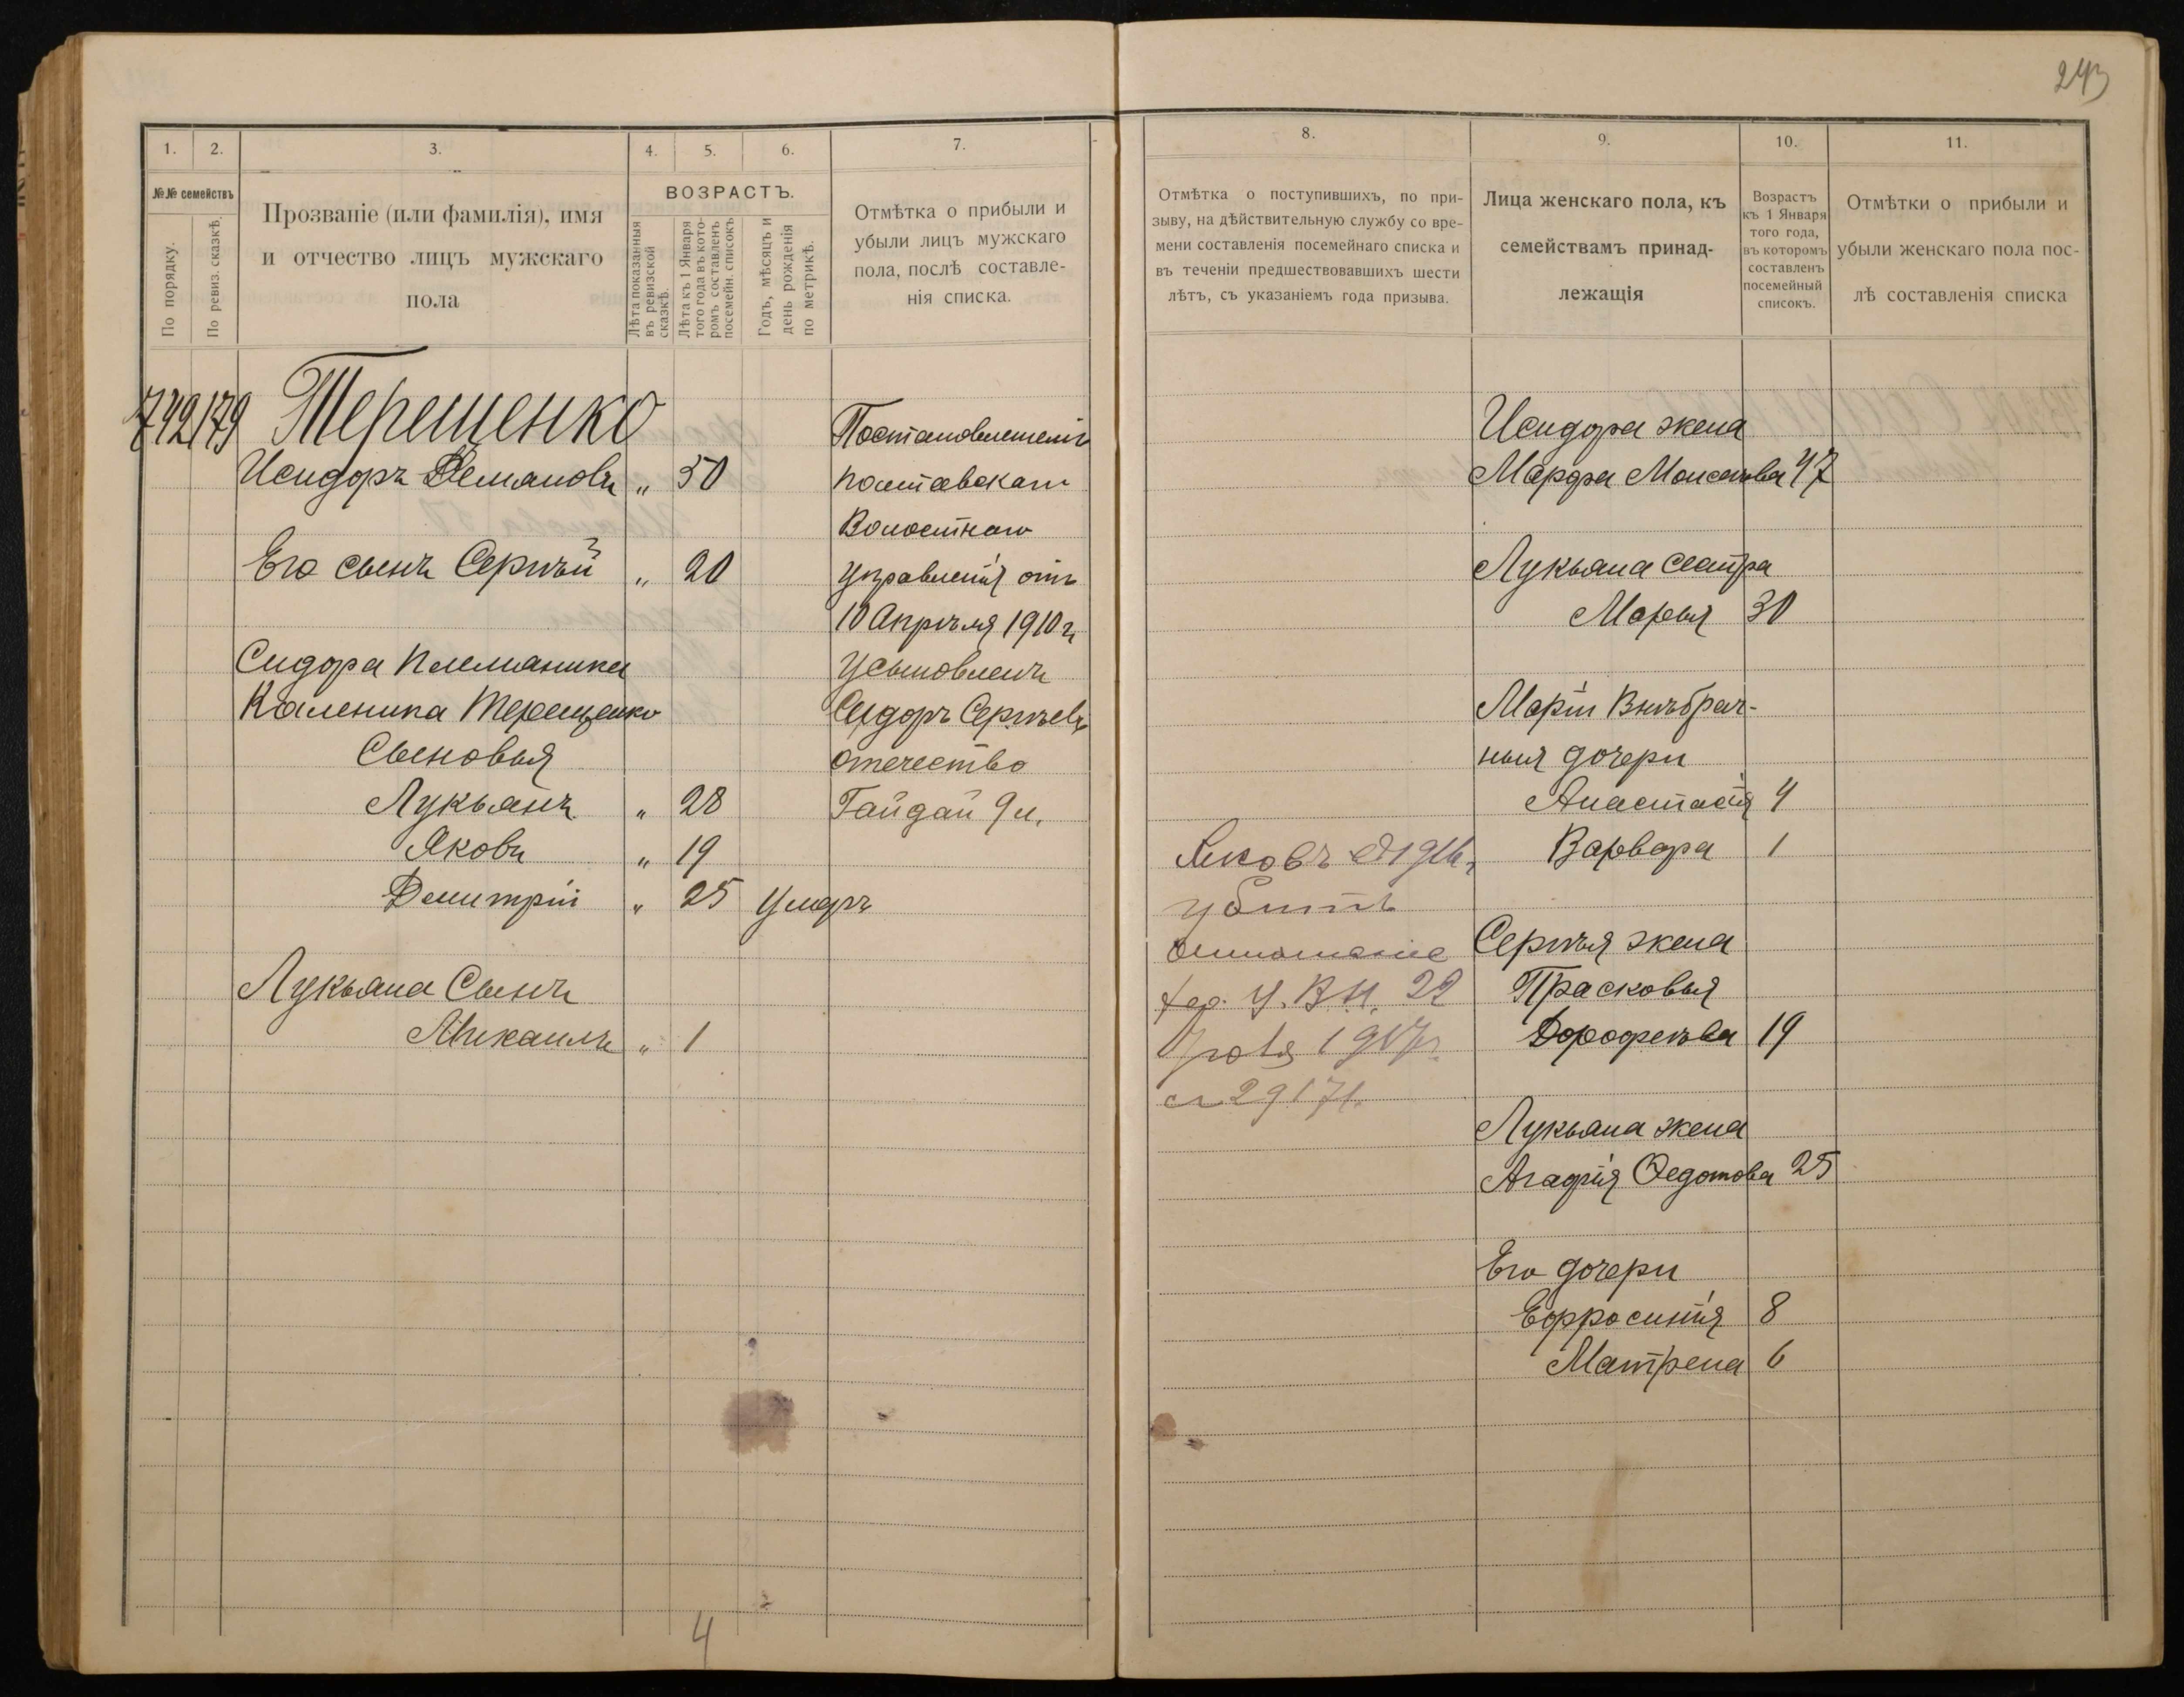 243
1. 2. 3. 4. 5. 6. 7.
№№ семействъ
По порядку.
По ревиз. сказкѣ.
Прозваніе (или фамилія), имя
и отчество лицъ мужскаго
пола
ВОЗРАСТЪ.
Лѣта показанныя
въ ревизской
сказкѣ.
Лѣта къ 1 Января
того года въ кото-
ромъ составленъ
посемейн. списокъ
Годъ, мѣсяцъ и
день рожденія
по метрикѣ.
Отмѣтка о прибыли и
убыли лицъ мужскаго
пола, послѣ составле-
нія списка.
742 179 Терещенко
Исидоръ Демановъ " 50
Его сынъ Сергѣй " 20
Сидора племянника
Каленика Терещенко
Сыновья
Лукьянъ " 28
Яковъ " 19
Демитрій " 25 Умеръ
Лукьяна Сынъ
Михаилъ " 1
Постановленіемъ
Волостного
Управленія отъ
10 Апрѣля 1910 г.
Усыновленъ
Сидоръ Сергѣевъ
отечество
Гайдай 9 л.
4
8. 9. 10. 11.
Отмѣтка о поступившихъ, по при-
зыву, на дѣйствительную службу со вре-
мени составленія посемейнаго списка и
въ теченіи предшествовавшихъ шести
лѣтъ, съ указаніемъ года призыва.
Лица женскаго пола, къ
семействамъ принад-
лежащія
Возрастъ
къ 1 Января
того года,
въ которомъ
составленъ
посемейный
списокъ.
Отмѣтки о прибыли и
убыли женскаго пола пос-
лѣ составленія списка
Яковъ 1916 г.
убитъ
У. В. Н. 22
1917 г.
29171
Исидора жена
Марфа Моисеева 47
Лукьяна сестра
Марья 30
Маріи Внѣбрач-
ныя дочери
Анастасія 4
Варвара 1
Сергѣя жена
Прасковья
Дорофеева 19
Лукьяна жена
Агафія Федотова 25
Его дочери
Ефросинія 8
Матрена 6